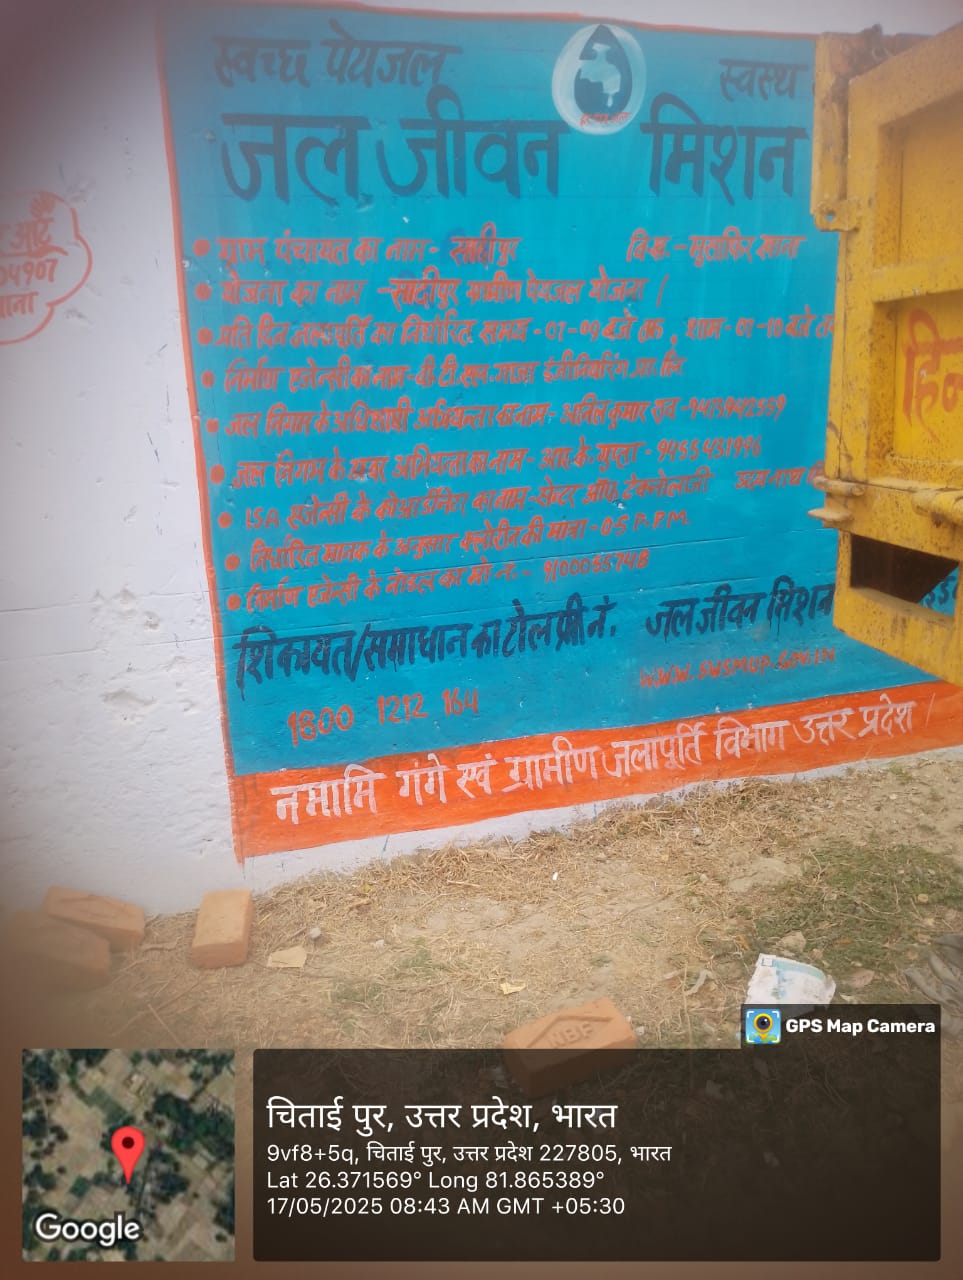 स्वच्छ पेयजल स्वस्थ
जल जीवन मिशन
ग्राम पंचायत का नाम - सादीपुर वि.ख.- मुसाफिर खाना
योजना का नाम - सादीपुर ग्रामीण पेयजल योजना ।
प्रति दिन जलापूर्ति का निर्धारित समय - 07-09 बजे तक, शाम - 07-10 बजे
निर्माण एजेन्सी का नाम - वी.टी.एल. गाजा इंजीनियरिंग प्रा. लि.
जल निगम के अधिशाषी अभियन्ता का नाम - अनिल कुमार
जल निगम के अवर अभियन्ता का नाम - आर.के. गुप्ता - 9455451996
ISA एजेन्सी के कोआर्डिनेटर का नाम - सेन्टर ऑफ टेक्नोलाजी
निर्धारित मानक के अनुसार क्लोरीन की मात्रा - 0.5 P.P.M.
निर्माण एजेन्सी के नोडल का मो.न. - 9100055748
शिकायत/समाधान का टोल फ्री नं. जल जीवन मिशन
1800 1212 164 WWW.SWSMUP.GOV.IN
नमामि गंगे एवं ग्रामीण जलापूर्ति विभाग उत्तर प्रदेश ।
आर्ट
04907
खाना
हिन
NBF
GPS Map Camera
चिताई पुर, उत्तर प्रदेश, भारत
9vf8+5q, चिताई पुर, उत्तर प्रदेश 227805, भारत
Lat 26.371569° Long 81.865389°
17/05/2025 08:43 AM GMT +05:30
Google